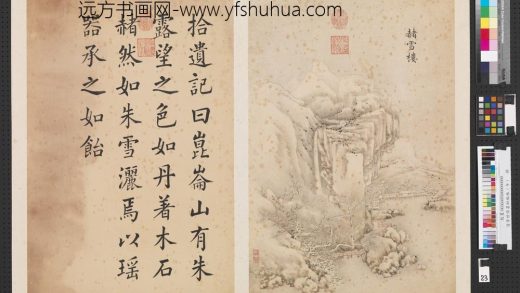 远方书画网-www.yfshuhua.com
拾遺記曰崑崙山有朱
露望之色如丹著木石
赭然如朱雪灑焉以瑶
器承之如飴
赭雪樓
23